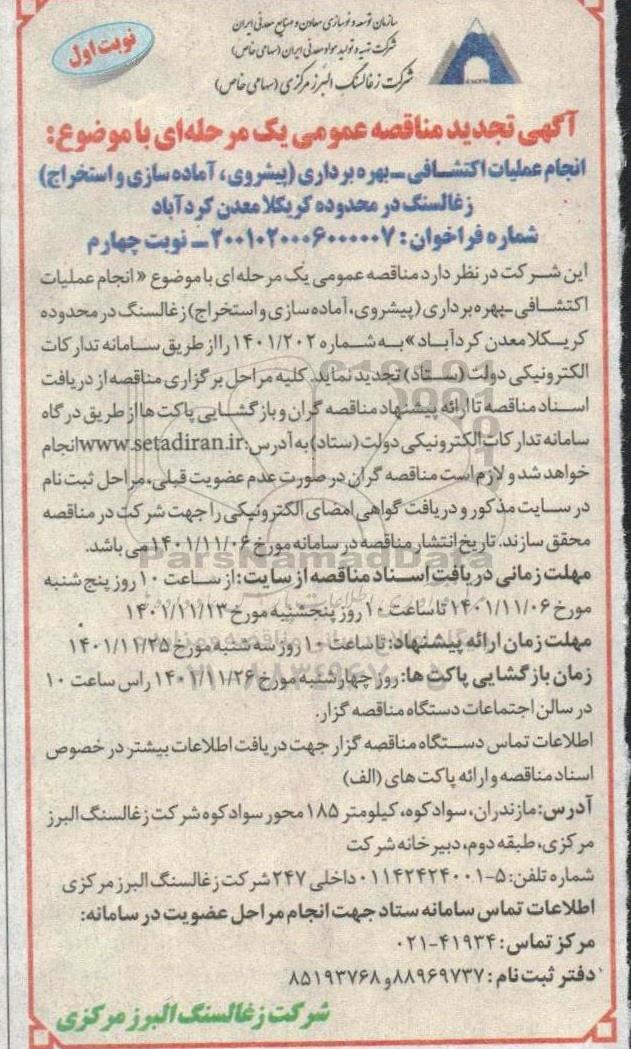 سازمان توسعه و نوسازی معادن و صنایع معدنی ایران
شرکت تهیه و تولید مواد معدنی ایران (سهامی خاص)
شرکت زغالسنگ البرز مرکزی (سهامی خاص)
نوبت اول
آگهی تجدید مناقصه عمومی یک مرحله‌ای با موضوع:
انجام عملیات اکتشافی ـ بهره برداری (پیشروی، آماده سازی و استخراج)
زغالسنگ در محدوده کریکلا معدن کردآباد
شماره فراخوان: ۲۰۰۱۰۲۰۰۰۶۰۰۰۰۰۷ ـ نوبت چهارم
این شرکت در نظر دارد مناقصه عمومی یک مرحله ای با موضوع « انجام عملیات
اکتشافی ـ بهره برداری (پیشروی، آماده سازی و استخراج) زغالسنگ در محدوده
کریکلا معدن کردآباد » به شماره ۱۴۰۱/۲۰۲ را از طریق سامانه تدارکات
الکترونیکی دولت (ستاد) تجدید نماید. کلیه مراحل برگزاری مناقصه از دریافت
اسناد مناقصه تا ارائه پیشنهاد مناقصه گران و بازگشایی پاکت ها از طریق درگاه
سامانه تدارکات الکترونیکی دولت (ستاد) به آدرس: www.setadiran.ir انجام
خواهد شد و لازم است مناقصه گران در صورت عدم عضویت قبلی، مراحل ثبت نام
در سایت مذکور و دریافت گواهی امضای الکترونیکی را جهت شرکت در مناقصه
محقق سازند. تاریخ انتشار مناقصه در سامانه مورخ ۱۴۰۱/۱۱/۰۶ می باشد.
مهلت زمانی دریافت اسناد مناقصه از سایت: از ساعت ۱۰ روز پنج شنبه
مورخ ۱۴۰۱/۱۱/۰۶ تا ساعت ۱۰ روز پنجشنبه مورخ ۱۴۰۱/۱۱/۱۳
مهلت زمان ارائه پیشنهاد: تا ساعت ۱۰ روز سه شنبه مورخ ۱۴۰۱/۱۱/۲۵
زمان بازگشایی پاکت ها: روز چهارشنبه مورخ ۱۴۰۱/۱۱/۲۶ راس ساعت ۱۰
در سالن اجتماعات دستگاه مناقصه گزار.
اطلاعات تماس دستگاه مناقصه گزار جهت دریافت اطلاعات بیشتر در خصوص
اسناد مناقصه و ارائه پاکت های (الف)
آدرس: مازندران، سوادکوه، کیلومتر ۱۸۵ محور سوادکوه شرکت زغالسنگ البرز
مرکزی، طبقه دوم، دبیرخانه شرکت
شماره تلفن: ۵-۰۱۱۴۲۴۲۴۰۰۱ داخلی ۲۴۷ شرکت زغالسنگ البرز مرکزی
اطلاعات تماس سامانه ستاد جهت انجام مراحل عضویت در سامانه:
مرکز تماس: ۴۱۹۳۴-۰۲۱
دفتر ثبت نام: ۸۸۹۶۹۷۳۷ و ۸۵۱۹۳۷۶۸
شرکت زغالسنگ البرز مرکزی
ParsNamadData